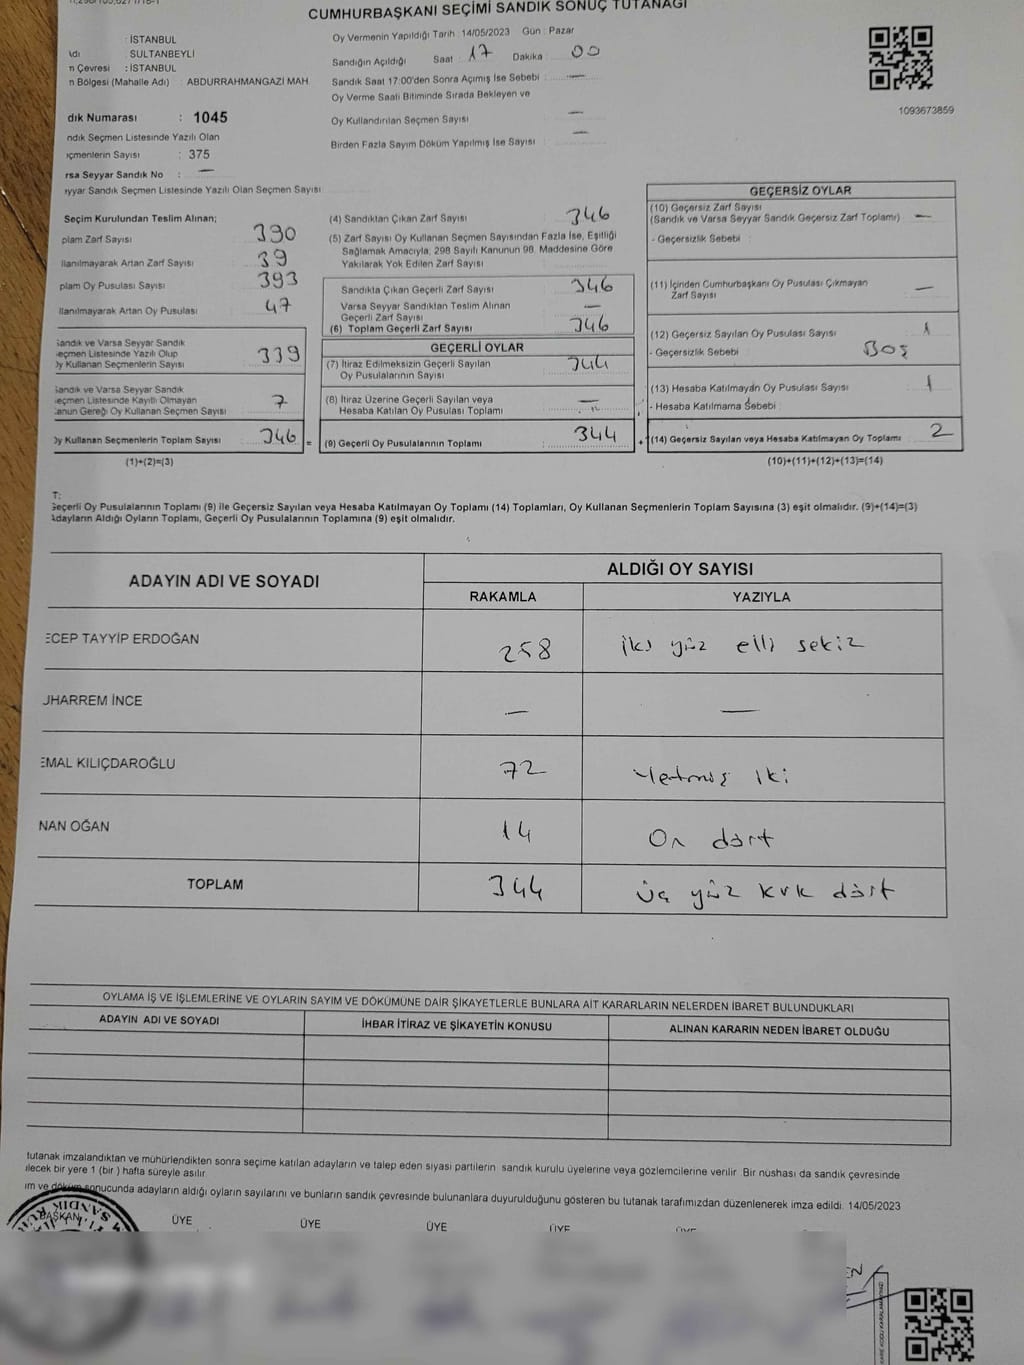 CUMHURBAŞKANI SEÇİMİ SANDIK SONUÇ TUTANAĞI
: İSTANBUL
Adı : SULTANBEYLİ
n Çevresi : İSTANBUL
n Bölgesi (Mahalle Adı) : ABDURRAHMANGAZİ MAH.
dık Numarası : 1045
ndık Seçmen Listesinde Yazılı Olan
içmenlerin Sayısı : 375
rsa Seyyar Sandık No : —
yyar Sandık Seçmen Listesinde Yazılı Olan Seçmen Sayısı
Oy Vermenin Yapıldığı Tarih : 14/05/2023 Gün : Pazar
Sandığın Açıldığı Saat : 17 Dakika : 00
Sandık Saat 17:00'den Sonra Açımış İse Sebebi : —
Oy Verme Saati Bitiminde Sırada Bekleyen ve
Oy Kullandırılan Seçmen Sayısı —
Birden Fazla Sayım Döküm Yapılmış İse Sayısı —
1093673859
Seçim Kurulundan Teslim Alınan;
plam Zarf Sayısı 390
llanılmayarak Artan Zarf Sayısı 39
plam Oy Pusulası Sayısı 393
llanılmayarak Artan Oy Pusulası 47
Sandık ve Varsa Seyyar Sandık
eçmen Listesinde Yazılı Olup
Oy Kullanan Seçmenlerin Sayısı 339
Sandık ve Varsa Seyyar Sandık
eçmen Listesinde Kayıtlı Olmayan
Kanun Gereği Oy Kullanan Seçmen Sayısı 7
Oy Kullanan Seçmenlerin Toplam Sayısı 346 =
(1)+(2)=(3)
(4) Sandıktan Çıkan Zarf Sayısı 346
(5) Zarf Sayısı Oy Kullanan Seçmen Sayısından Fazla İse, Eşitliği
Sağlamak Amacıyla; 298 Sayılı Kanunun 98. Maddesine Göre
Yakılarak Yok Edilen Zarf Sayısı
Sandıkta Çıkan Geçerli Zarf Sayısı 346
Varsa Seyyar Sandıktan Teslim Alınan
Geçerli Zarf Sayısı —
(6) Toplam Geçerli Zarf Sayısı 346
GEÇERLİ OYLAR
(7) İtiraz Edilmeksizin Geçerli Sayılan
Oy Pusulalarının Sayısı 344
(8) İtiraz Üzerine Geçerli Sayılan veya
Hesaba Katılan Oy Pusulası Toplamı —
(9) Geçerli Oy Pusulalarının Toplamı 344 +
GEÇERSİZ OYLAR
(10) Geçersiz Zarf Sayısı
(Sandık ve Varsa Seyyar Sandık Geçersiz Zarf Toplamı) —
- Geçersizlik Sebebi :
(11) İçinden Cumhurbaşkanı Oy Pusulası Çıkmayan
Zarf Sayısı —
(12) Geçersiz Sayılan Oy Pusulası Sayısı 1
- Geçersizlik Sebebi : Boş
(13) Hesaba Katılmayan Oy Pusulası Sayısı 1
- Hesaba Katılmama Sebebi :
(14) Geçersiz Sayılan veya Hesaba Katılmayan Oy Toplamı 2
(10)+(11)+(12)+(13)=(14)
T:
Geçerli Oy Pusulalarının Toplamı (9) ile Geçersiz Sayılan veya Hesaba Katılmayan Oy Toplamı (14) Toplamları, Oy Kullanan Seçmenlerin Toplam Sayısına (3) eşit olmalıdır. (9)+(14)=(3)
Adayların Aldığı Oyların Toplamı, Geçerli Oy Pusulalarının Toplamına (9) eşit olmalıdır.
ADAYIN ADI VE SOYADI ALDIĞI OY SAYISI
RAKAMLA YAZIYLA
ECEP TAYYİP ERDOĞAN 258 iki yüz elli sekiz
UHARREM İNCE — —
EMAL KILIÇDAROĞLU 72 Yetmiş iki
NAN OĞAN 14 On dört
TOPLAM 344 üç yüz kırk dört
OYLAMA İŞ VE İŞLEMLERİNE VE OYLARIN SAYIM VE DÖKÜMÜNE DAİR ŞİKAYETLERLE BUNLARA AİT KARARLARIN NELERDEN İBARET BULUNDUKLARI
ADAYIN ADI VE SOYADI İHBAR İTİRAZ VE ŞİKAYETİN KONUSU ALINAN KARARIN NEDEN İBARET OLDUĞU
tutanak imzalandıktan ve mühürlendikten sonra seçime katılan adayların ve talep eden siyasi partilerin sandık kurulu üyelerine veya gözlemcilerine verilir. Bir nüshası da sandık çevresinde
ilecek bir yere 1 (bir) hafta süreyle asılır.
ım ve döküm sonucunda adayların aldığı oyların sayılarını ve bunların sandık çevresinde bulunanlara duyurulduğunu gösteren bu tutanak tarafımızdan düzenlenerek imza edildi. 14/05/2023
BAŞKAN ÜYE ÜYE ÜYE ÜYE ÜYE